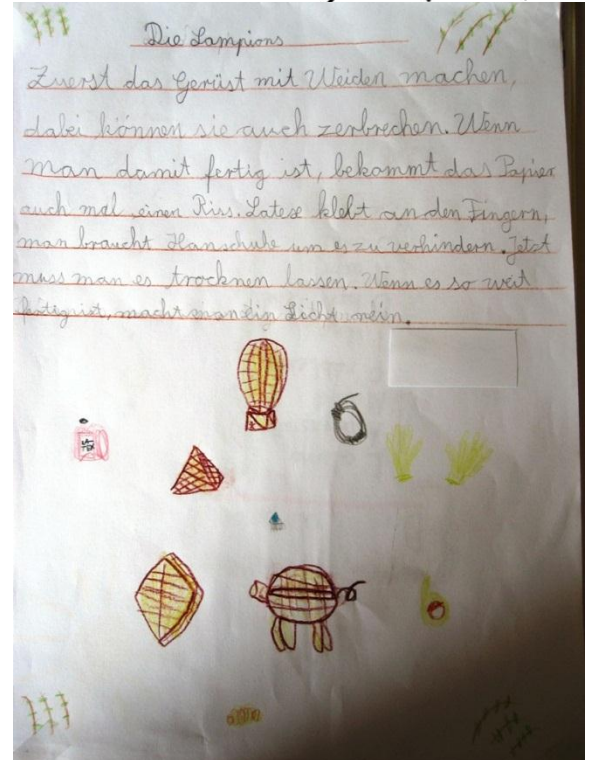 Die Lampions
Zuerst das Gerüst mit Weiden machen,
dabei können sie auch zerbrechen. Wenn
man damit fertig ist, bekommt das Papier
auch mal einen Riss. Latex klebt an den Fingern,
man braucht Hanschuhe um es zu verhindern. Jetzt
muss man es trocknen lassen. Wenn es so weit
fertig ist, macht man ein Licht rein.
LA-
TEX